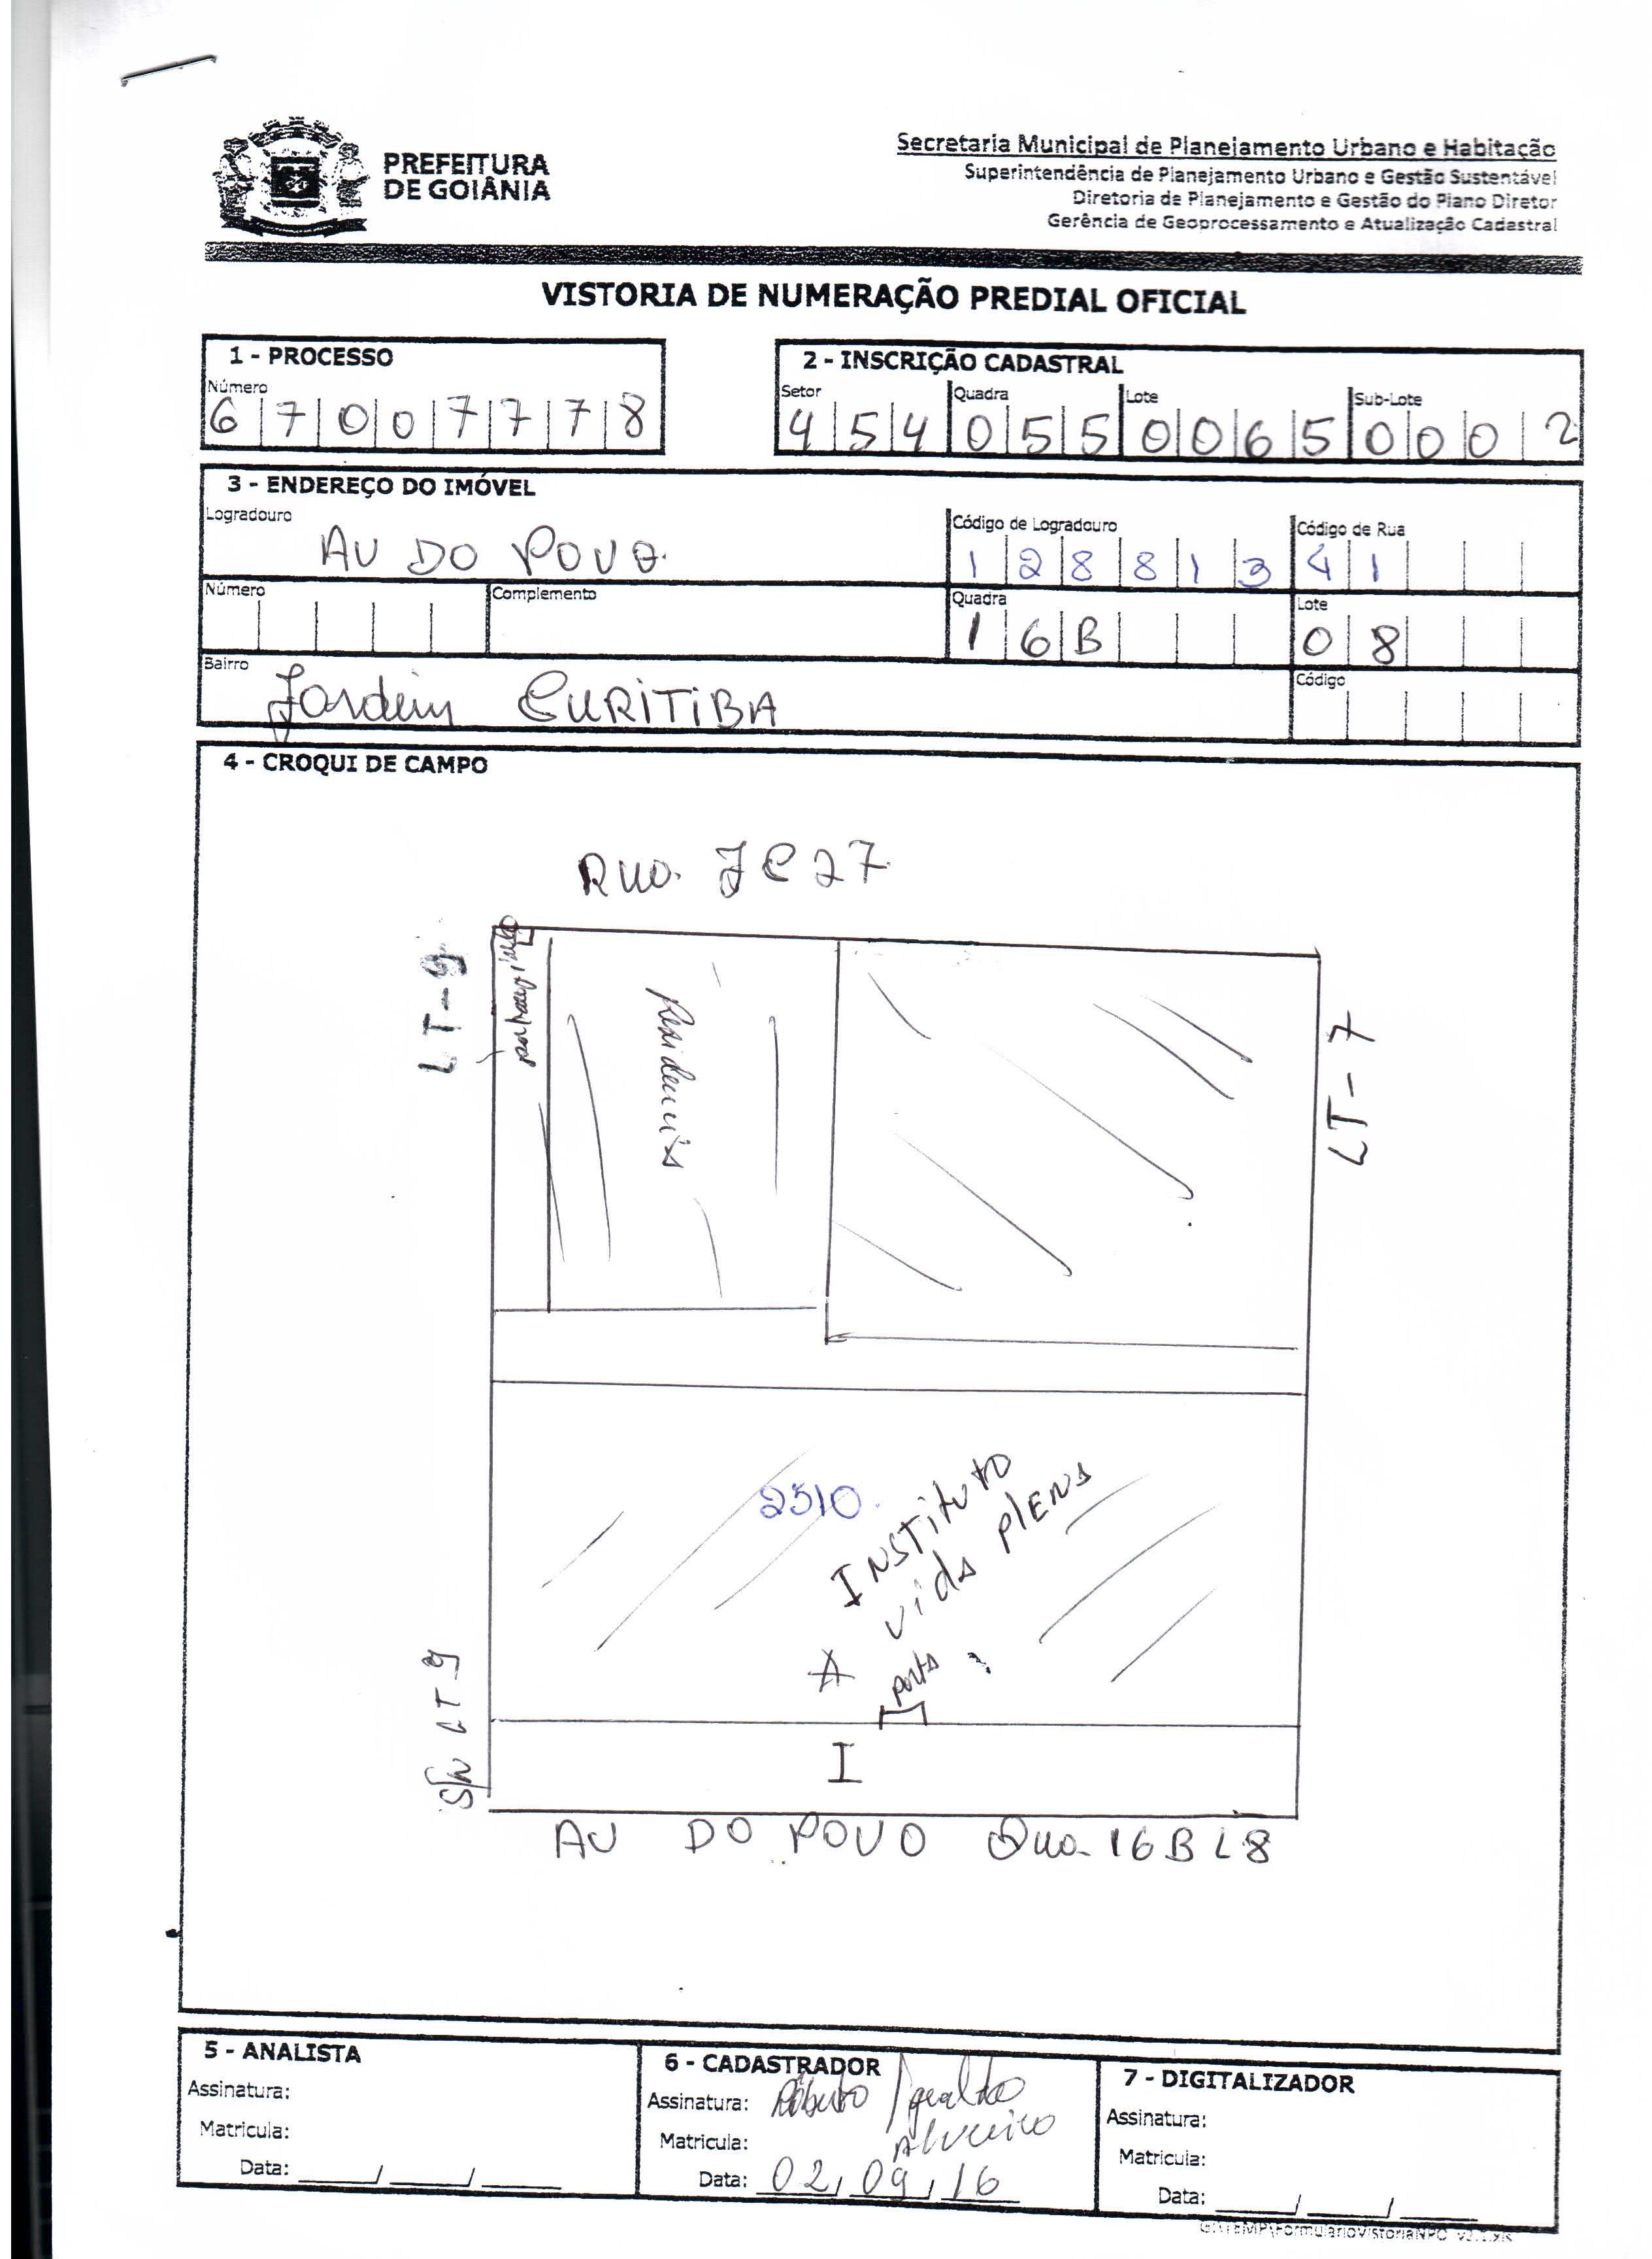 PREFEITURA
DE GOIÂNIA
Secretaria Municipal de Planejamento Urbano e Habitação
Superintendência de Planejamento Urbano e Gestão Sustentável
Diretoria de Planejamento e Gestão do Plano Diretor
Gerência de Geoprocessamento e Atualização Cadastral
VISTORIA DE NUMERAÇÃO PREDIAL OFICIAL
1 - PROCESSO
Número
6 7 0 0 7 7 7 8
2 - INSCRIÇÃO CADASTRAL
Setor Quadra Lote Sub-Lote
4 5 4 0 5 5 0 0 6 5 0 0 0 2
3 - ENDEREÇO DO IMÓVEL
Logradouro
AV DO POVO
Código de Logradouro
1 2 8 8 1 3
Código de Rua
41
Número
Complemento
Quadra
1 6 B
Lote
0 8
Bairro
Jardim CURITIBA
Código
4 - CROQUI DE CAMPO
Rua JC27
LT-9
Residencia
LT-7
2510
INSTITUTO
vida PLENA
porta
S/N LT 9
I
AV DO POVO Qua. 16B L8
5 - ANALISTA
Assinatura:
Matricula:
Data: ___/___/___
6 - CADASTRADOR
Assinatura: Roberto / Geraldo
Matricula:
Data: 02/09/16
7 - DIGITALIZADOR
Assinatura:
Matricula:
Data: ___/___/___
G:\TEMP\FormularioVistoriaNPO_v2.1.xls